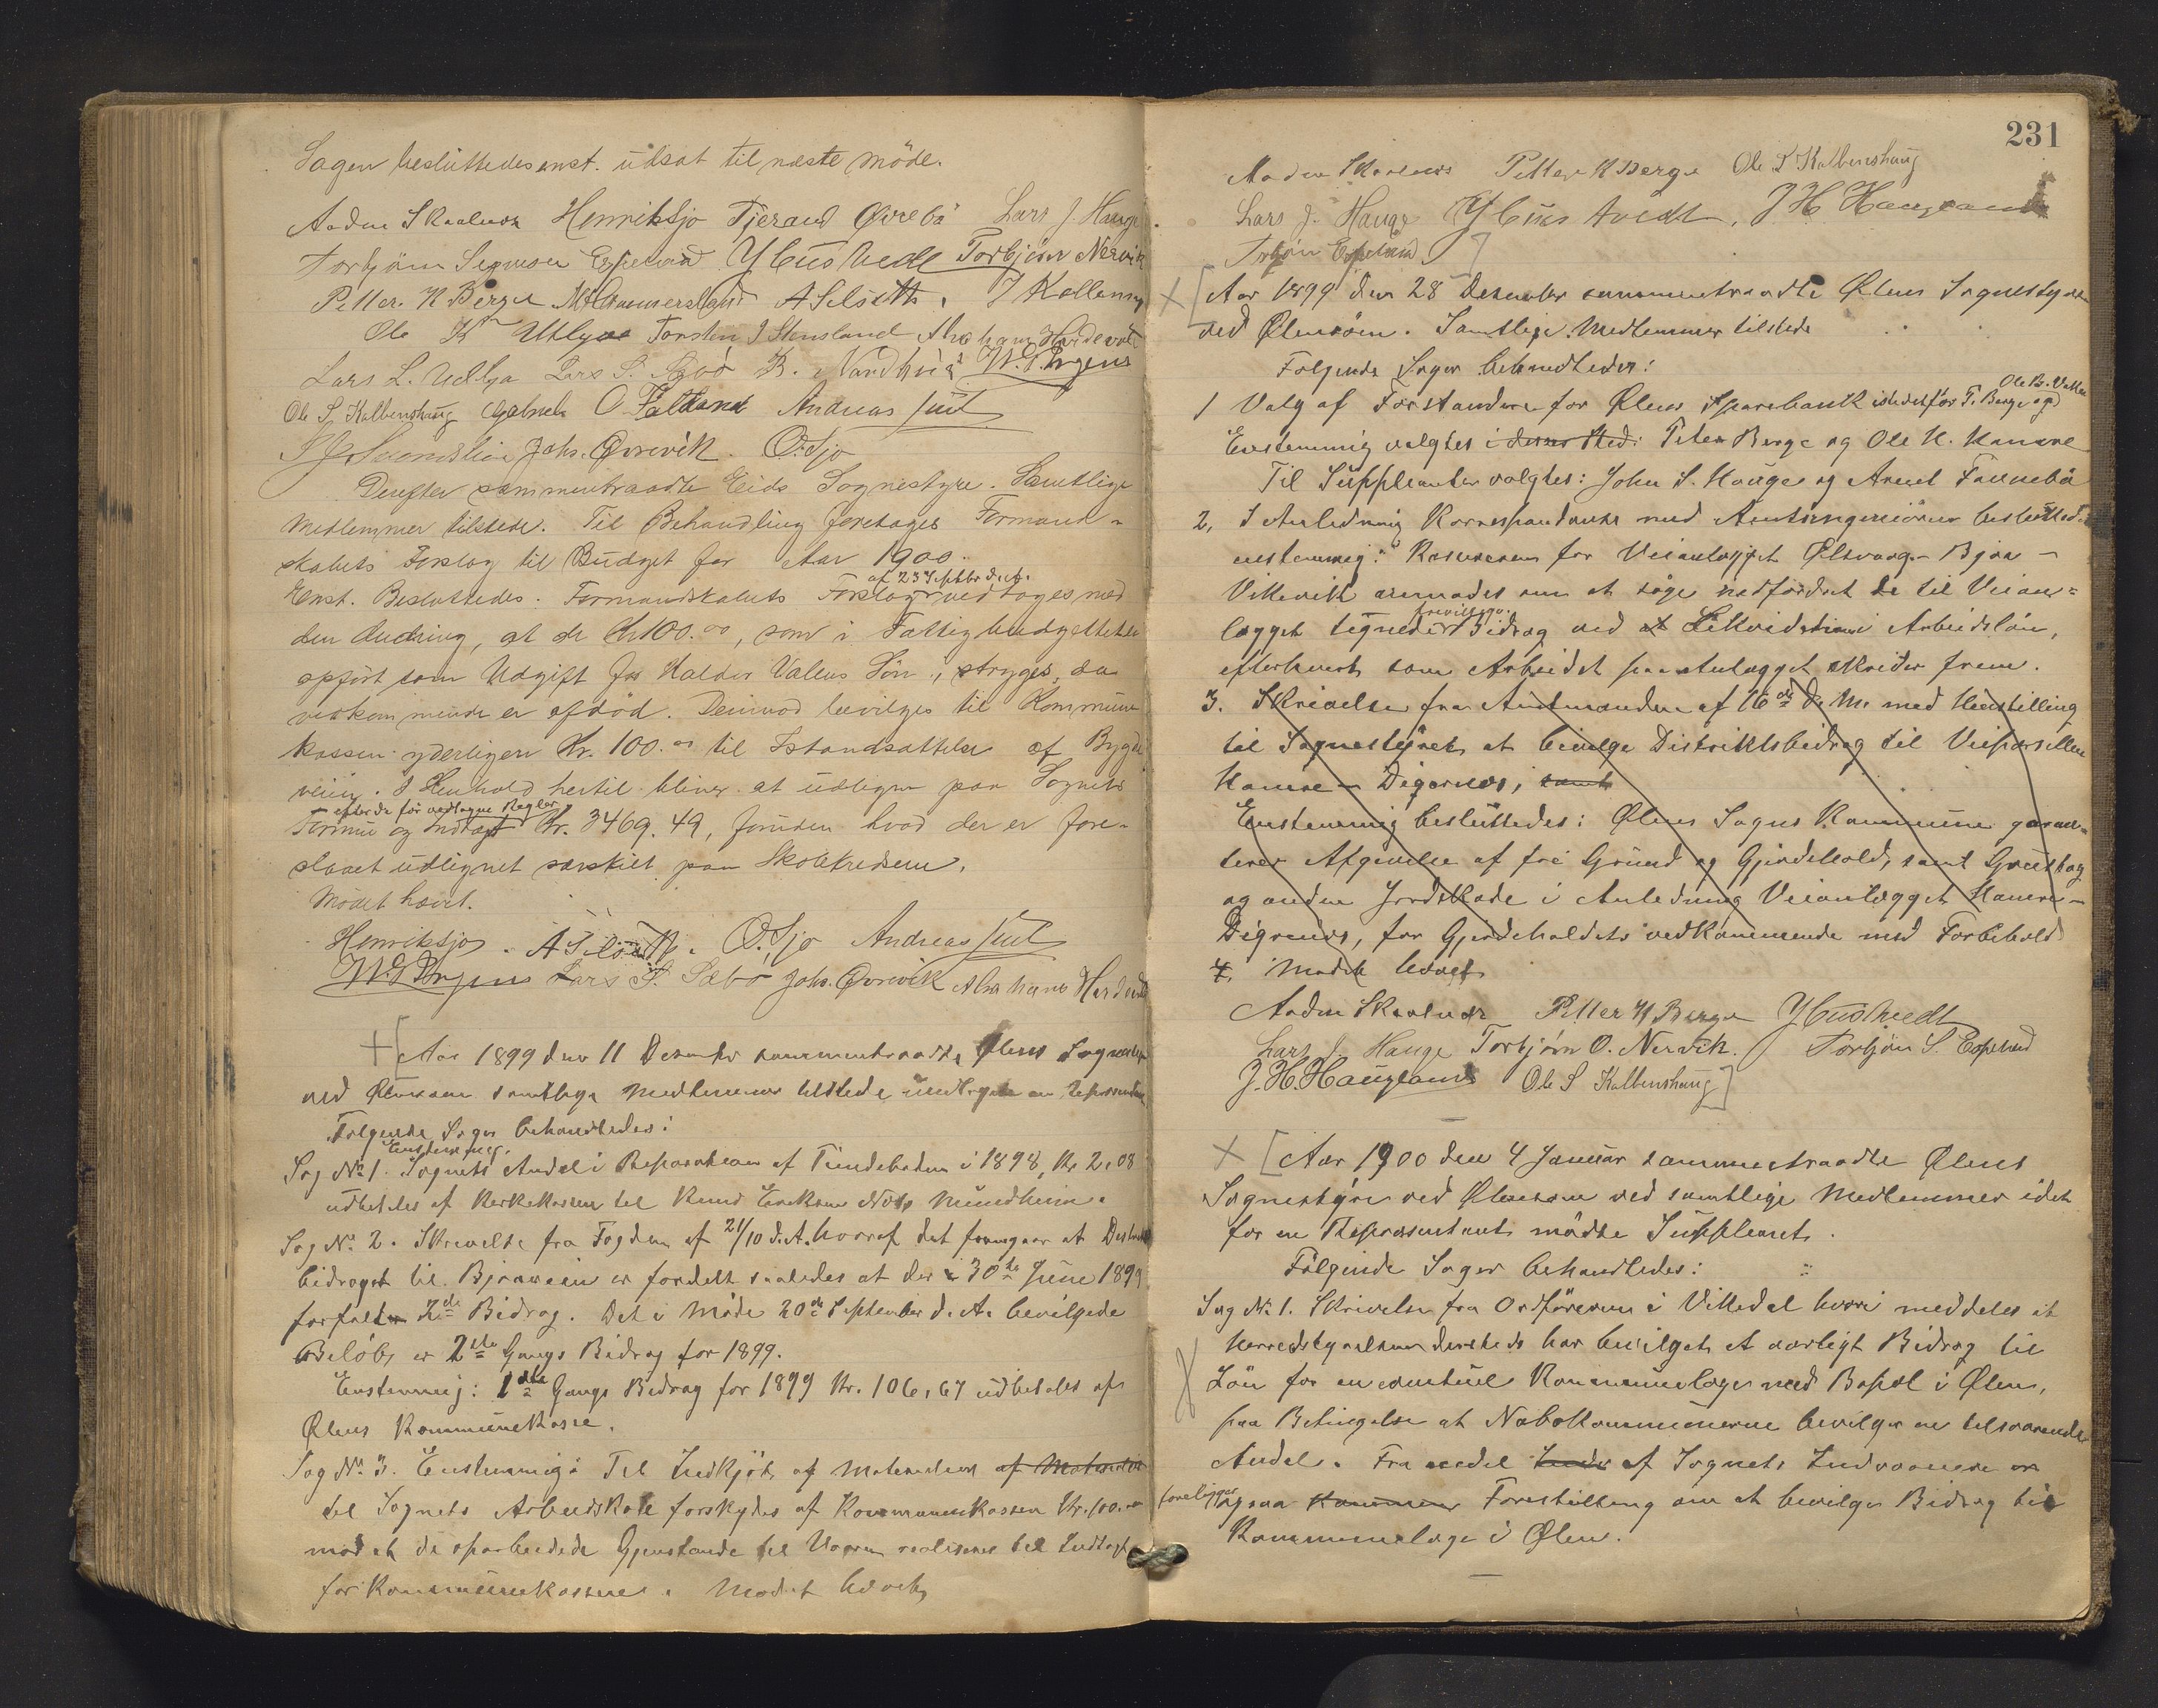 Sagen besluttedes enst. udsat til næste möde.
Aadne Skaalnes Henrik Sjo Tjerand Øvrebö Lars J. Hauge
Torbjörn Espeland Y Gustvedt Torbjörn Nervik
Petter. K Berge A Selseth. J Kallen
Ole K Utbjoe Torsten J Stensland Abraham
Lars L. Udbjo Lars S. Sæbö
Ole S. Kalbenshaug Gabriel O. Fatland Andreas
Johs. Øvrevik. O. Sjo
Derefter sammentraadte Eids Sognestyre. Samtlige
Medlemmer tilstede. Til Behandling foretages Formand-
skabets Forslag til Budget for Aar 1900.
af 23 Septbr d. A.
Enst. Besluttedes: Formandskabets Forslag vedtages med
den Ændring, at de Kr 100.00, som i Fattigbudgettet er
opført som Udgift for Halder Valens Sön, stryges, da
vedkommende er afdöd. Derimod bevilges til Kommune
kassen yderligere Kr. 100.00 til Istandsættelse af Bygde
veie. I Henhold hertil bliver at udligne paa Sognets
efter de för vedtagne Regler
Formue og Indtægt Kr. 3469.49, foruden hvad der er fore-
slaaet udlignet særskilt paa Skolekredsene.
Mödet hævet.
Henrik Sjo. A Selseth. O. Sjo Andreas
Lars S. Sæbö Johs. Øvrevik Abraham
Aar 1899 den 11 Desember sammentraadte Ølens Sognestyre
ved Ølensøen samtlige Medlemmer tilstede undtagen en Repræsentant
Følgende Sager behandledes:
Enstemmig.
Sag No 1. Sognets Andel i Reparation af Tiendeboden i 1898, Kr 2.08
udbetales af Kirkekassen til Knud Eriksen Mundheim.
Sag No 2. Skrivelse fra Fogden af 21/10 d.A. hvoraf det fremgaar at Distrikts
bidraget til Bjoaveien er fordelt saaledes at der 30te Juni 1899
forfalder 2det Bidrag. Det i Möde 20de September d. A. bevilgede
Belöb, er 2den Gangs Bidrag for 1899.
Enstemmig: 1ste Gangs Bidrag for 1899 Kr. 106,67 udbetales af
Ølens Kommunekasse.
Sag No 3. Enstemmig: Til Indkjöb af Materialier af Materialier
til Sognets Arbeidsskole forskydes af Kommunekassen Kr. 100.00
mod at de oparbeidede Gjenstande til Vaaren realiseres til Indtægt
for Kommunekassen. Mødet hævet
231
Aadne Skaalnes Petter K Berge Ole S Kalbenshaug
Lars J. Hauge Y Gustvedt, J H Haugland
Torbjön Espeland
Aar 1899 den 28 Desember sammentraadte Ølens Sognestyre
ved Ølensöen. Samtlige Medlemmer tilstede
Følgende Sager behandledes:
Ole B. Vatne
1 Valg af Forstandere for Ølens Sparebank istedetfor T. Berge og
Enstemmig valgtes i deres Sted: Peter Berge og Ole K. Kamsve
Til Suppleanter valgtes: John S. Hauge og Arent Fannebö
2, I Anledning Korrespondanse med Amtsingeniören besluttedes
enstemmig: Kasereren for Veianlægget Ølsvaag - Bjoa -
Vikevik anmodes om at söge nedfordret de til Veian=
frivillige
lægget tegnede Bidrag ved at Likvidation i Arbeidslön,
efterhvert som Arbeidet paa Anlægget skrider frem.
3. Skrivelse fra Amtmanden af 16de d. M. med Henstilling
til Sognestyret at bevilge Distriktsbidrag til Veiparsellen
Kamsve - Digernes, samt
Enstemmig besluttedes: Ølens Sogns Kommune garan-
terer Afgivelse af fri Grund og Gjerdehold, samt Grustag
og anden Jordskade i Anledning Veianlægget Kamsve -
Digernes, for Gjerdeholdets vedkommende med Forbehold
4. Mødet hævet
Aadne Skaalnes Petter K Berge Y Gustvedt
Lars J. Hauge Torbjörn O. Nervik. Torbjön S. Espeland
J. H. Haugland Ole S Kalbenshaug
Aar 1900 den 4 Januar sammentraadte Ølens
Sognestyre ved Ølensøen ved samtlige Medlemmer idet
for en Repræsentant mödte Suppleant.
Fölgende Sager behandledes:
Sag No 1. Skrivelse fra Ordföreren i Vikedal hvori meddeles at
Herredstyrelsen dersteds har bevilget et aarligt Bidrag til
Lön for en eventuel Kommunelæge med Bopæl i Ølen,
paa Betingelse at Nabokommunerne bevilger en tilsvarende
Andel. Fra endel af Sognets Indvaanere
foreligger ogsaa Forestilling om at bevilge Bidrag til
Kommunelæge i Ølen.